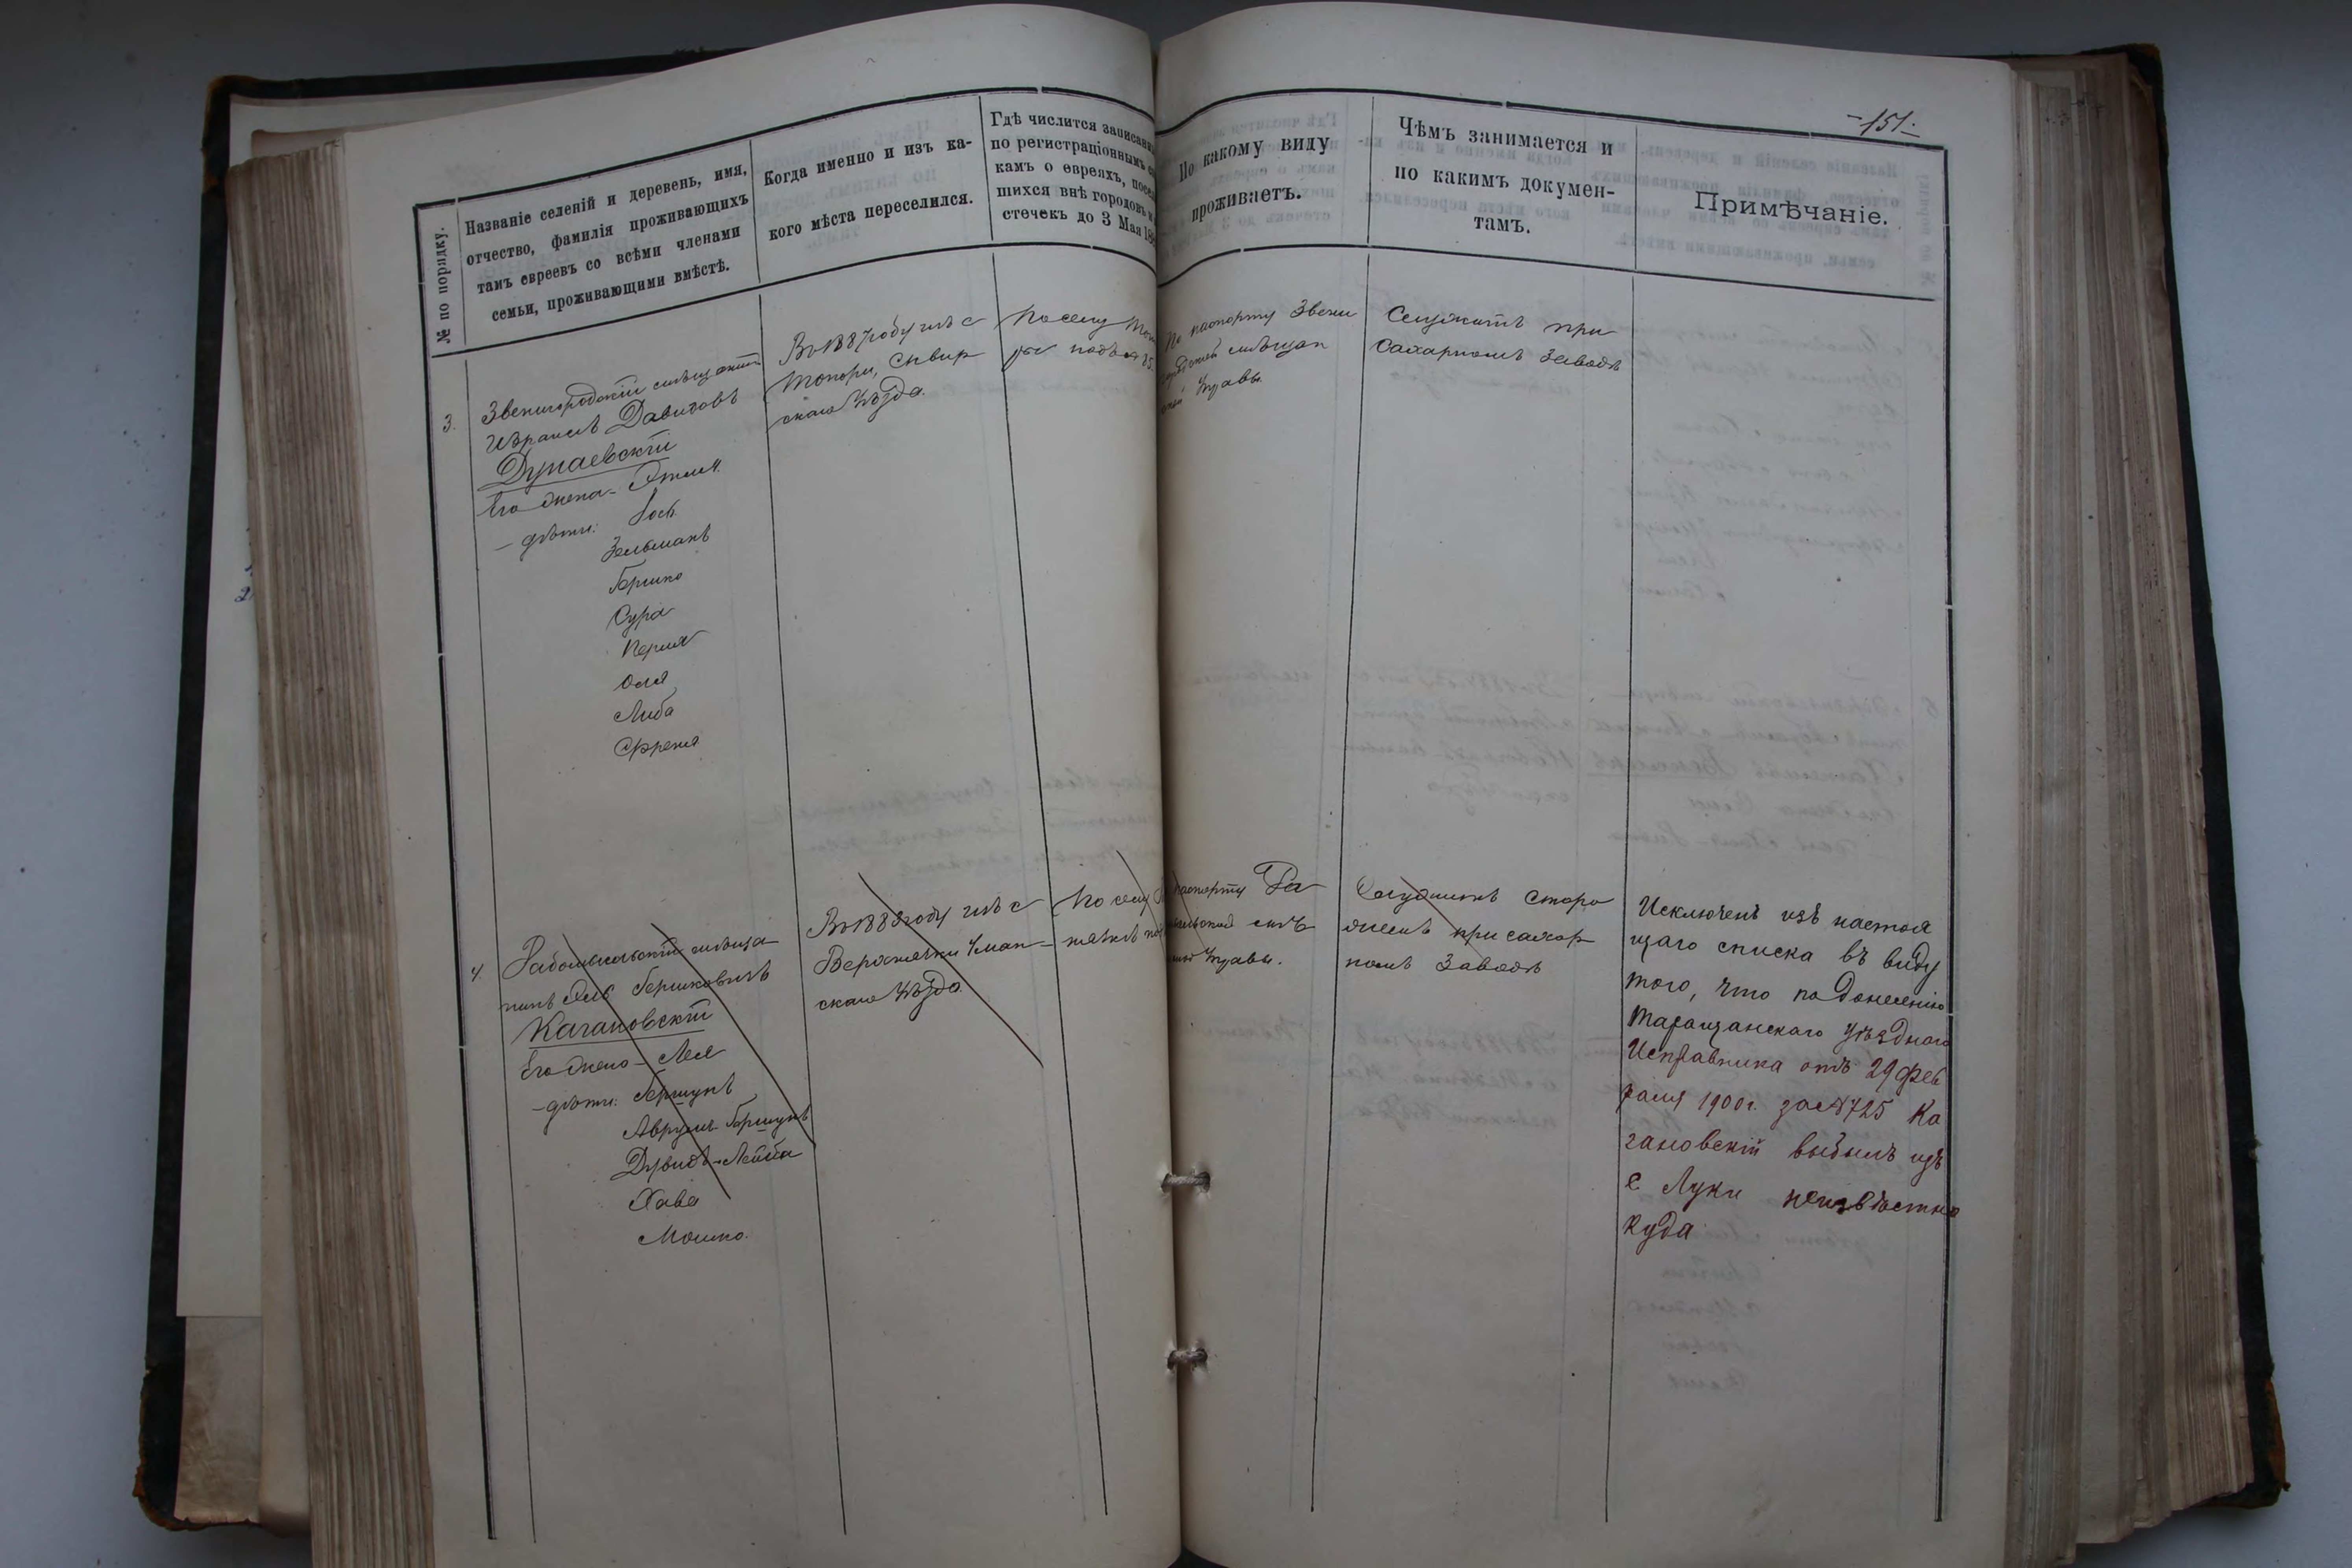 -151-
№ по порядку.
Названіе селеній и деревень, имя,
отчество, фамилія проживающихъ
тамъ евреевъ со всѣми членами
семьи, проживающими вмѣстѣ.
Когда именно и изъ ка-
кого мѣста переселился.
Гдѣ числится записан
по регистраціоннымъ
камъ о евреяхъ, посел
шихся внѣ городовъ и
стечекъ до 3 Мая 188
По какому виду
проживаетъ.
Чѣмъ занимается и
по какимъ докумен-
тамъ.
Примѣчаніе.
3.
Звенигородскій мѣщанинъ
Израиль Давидовъ
Дунаевскій
Его жена - Этля
- дѣти: Іось
Зельманъ
Гершко
Сура
Перля
Оля
Либа
Френя
Въ 1887 году изъ с
Топори, Сквир
скаго Уѣзда.
По селу Топо
ры подъ № 35.
По паспорту Звени
городской мѣщан
ской Управы.
Служитъ при
Сахарномъ Заводѣ
4.
Радомысльскій мѣща
нинъ Эль Гершковичъ
Кагановскій
Его жена - Лея
- дѣти: Гершунъ
Аврумъ-Гершунъ
Дувидъ-Лейба
Хава
Мошко.
Въ 1888 году изъ с
Верхнячки Уман
скаго Уѣзда.
По селу
паспорту Ра
Управы.
Служитъ сторо
жемъ при сахар
номъ Заводѣ
Исключенъ изъ настоя
щаго списка въ виду
того, что по донесенію
Таращанскаго Уѣзднаго
Исправника отъ 29 фев
раля 1900 г. за № 725 Ка
гановскій выбылъ изъ
с Луки неизвѣстно
куда